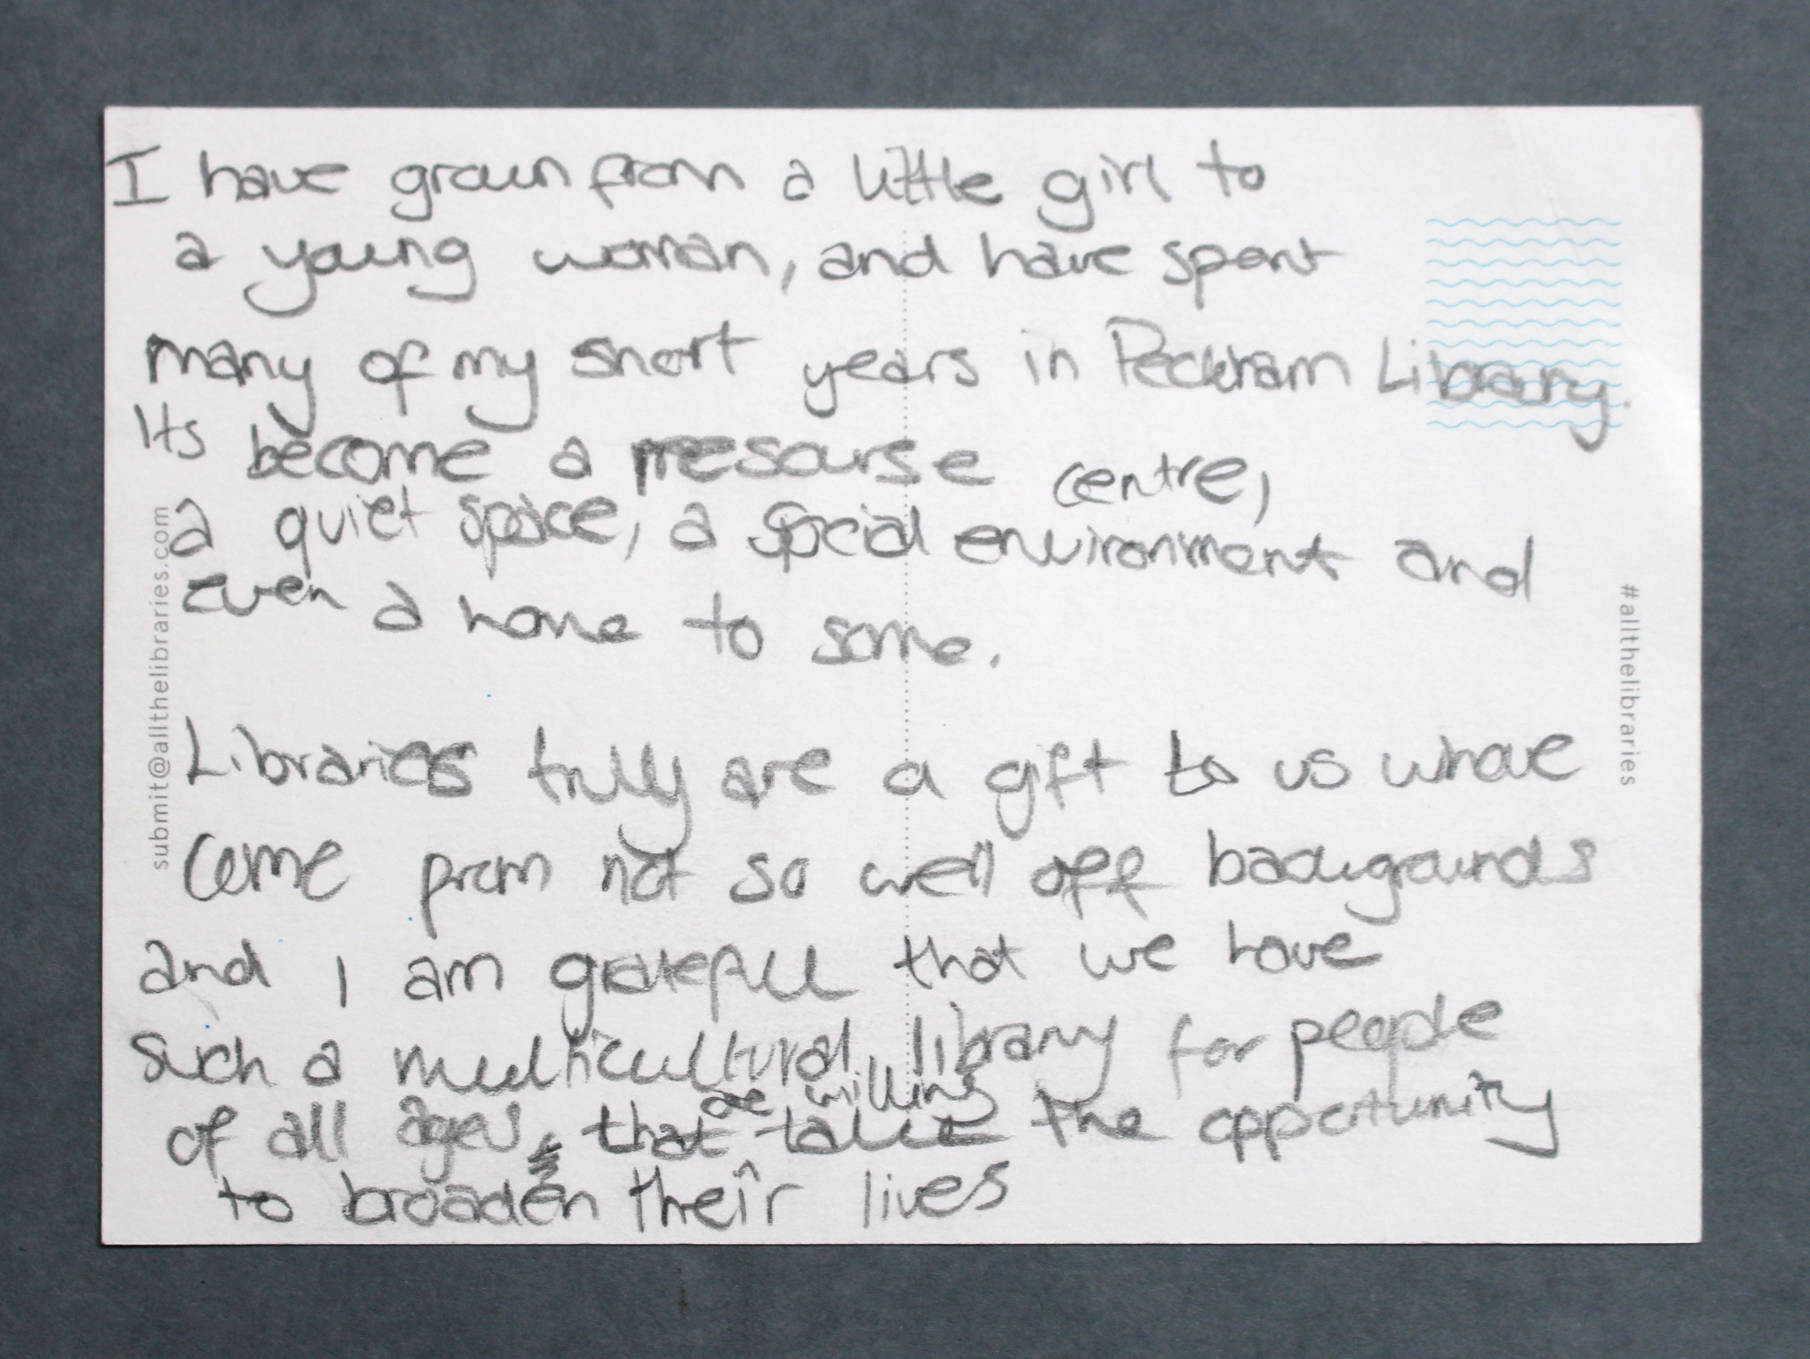 I have grown from a little girl to
a young woman, and have spent
many of my short years in Peckham Library.
Its become a resourse centre,
a quiet space, a social environment and
even a home to some.
Libraries truly are a gift to us whove
come from not so well off backgrounds
and I am grateful that we have
such a multicultural library for people
are willing
of all ages, that take the opportunity
to broaden their lives
submit@allthelibraries.com
#allthelibraries